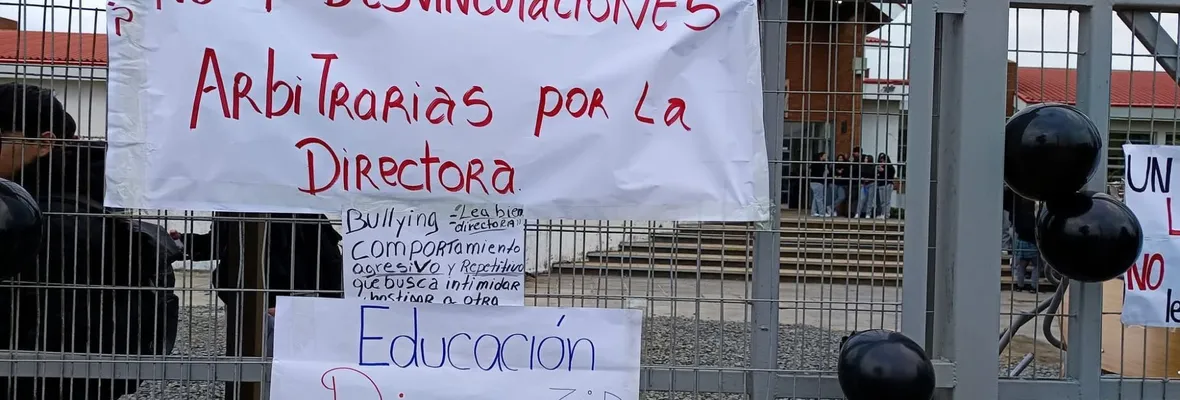 NO + DESVINCULACIONES
ARBITRARIAS POR LA
DIRECTORA
Bullying "Lea bien
directora"
COMPORTAMIENTO
agresivo y Repetitivo
que busca intimidar
hostigar a otra
Educación
UN
NO